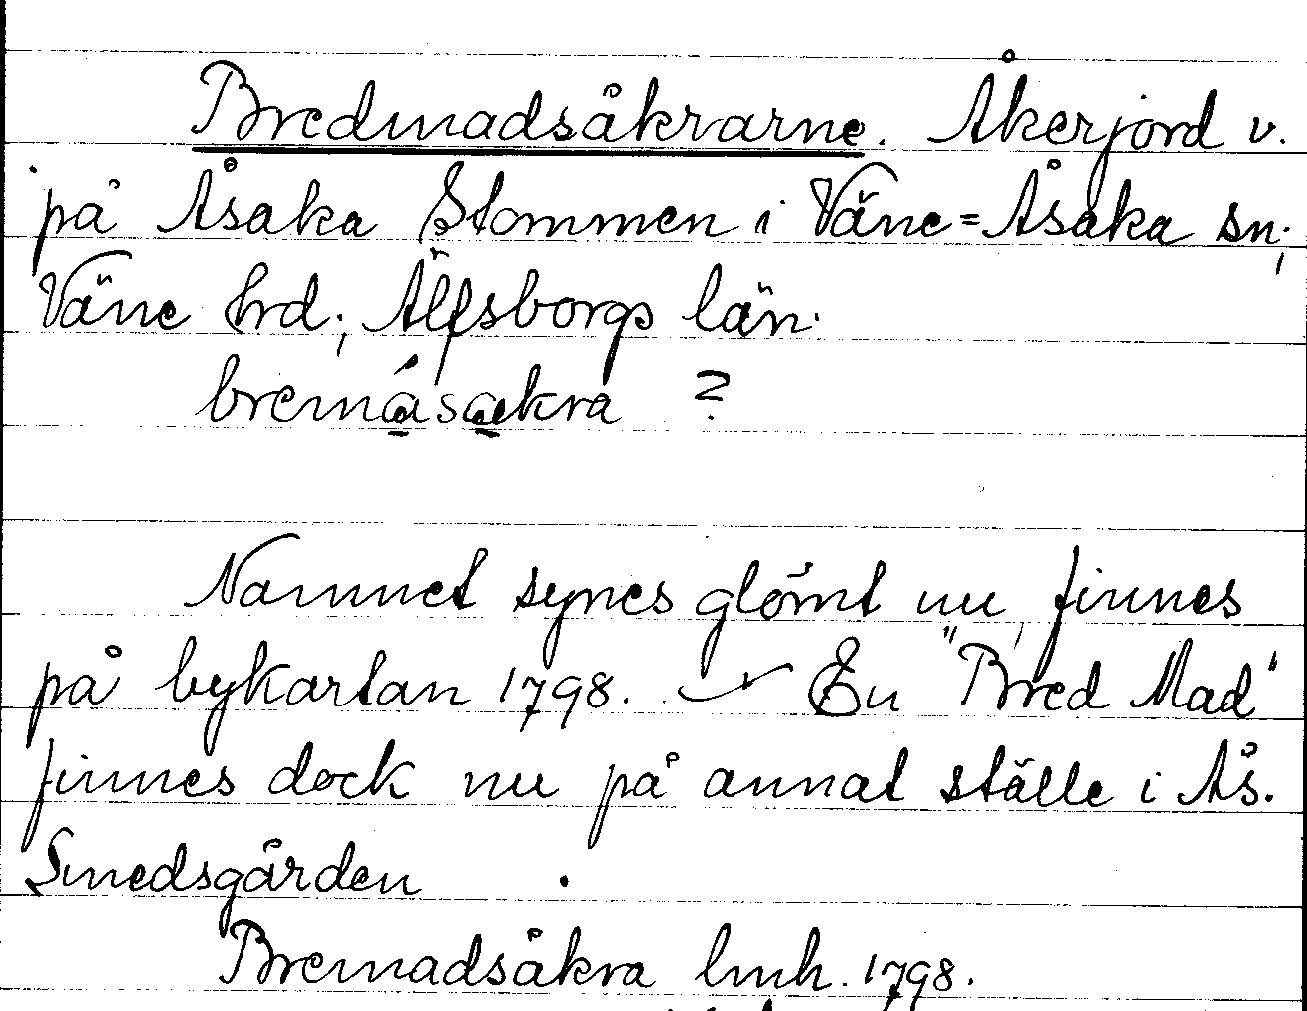 Bredmadsåkrarne. Åkerjord v.
på Åsaka Stommen i Väne=Åsaka sn;
Väne hrd; Älfsborgs län.
bremásakra ?
Namnet synes glömt nu, finnes
på bykartan 1798. En "Bred Mad"
finnes dock nu på annat ställe i Ås.
Smedsgården .
Bremadsåkra lmh. 1798.